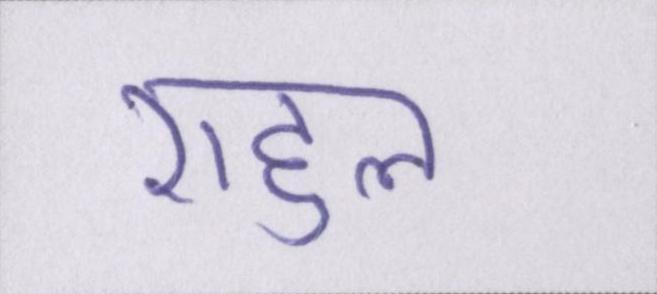 राहुल